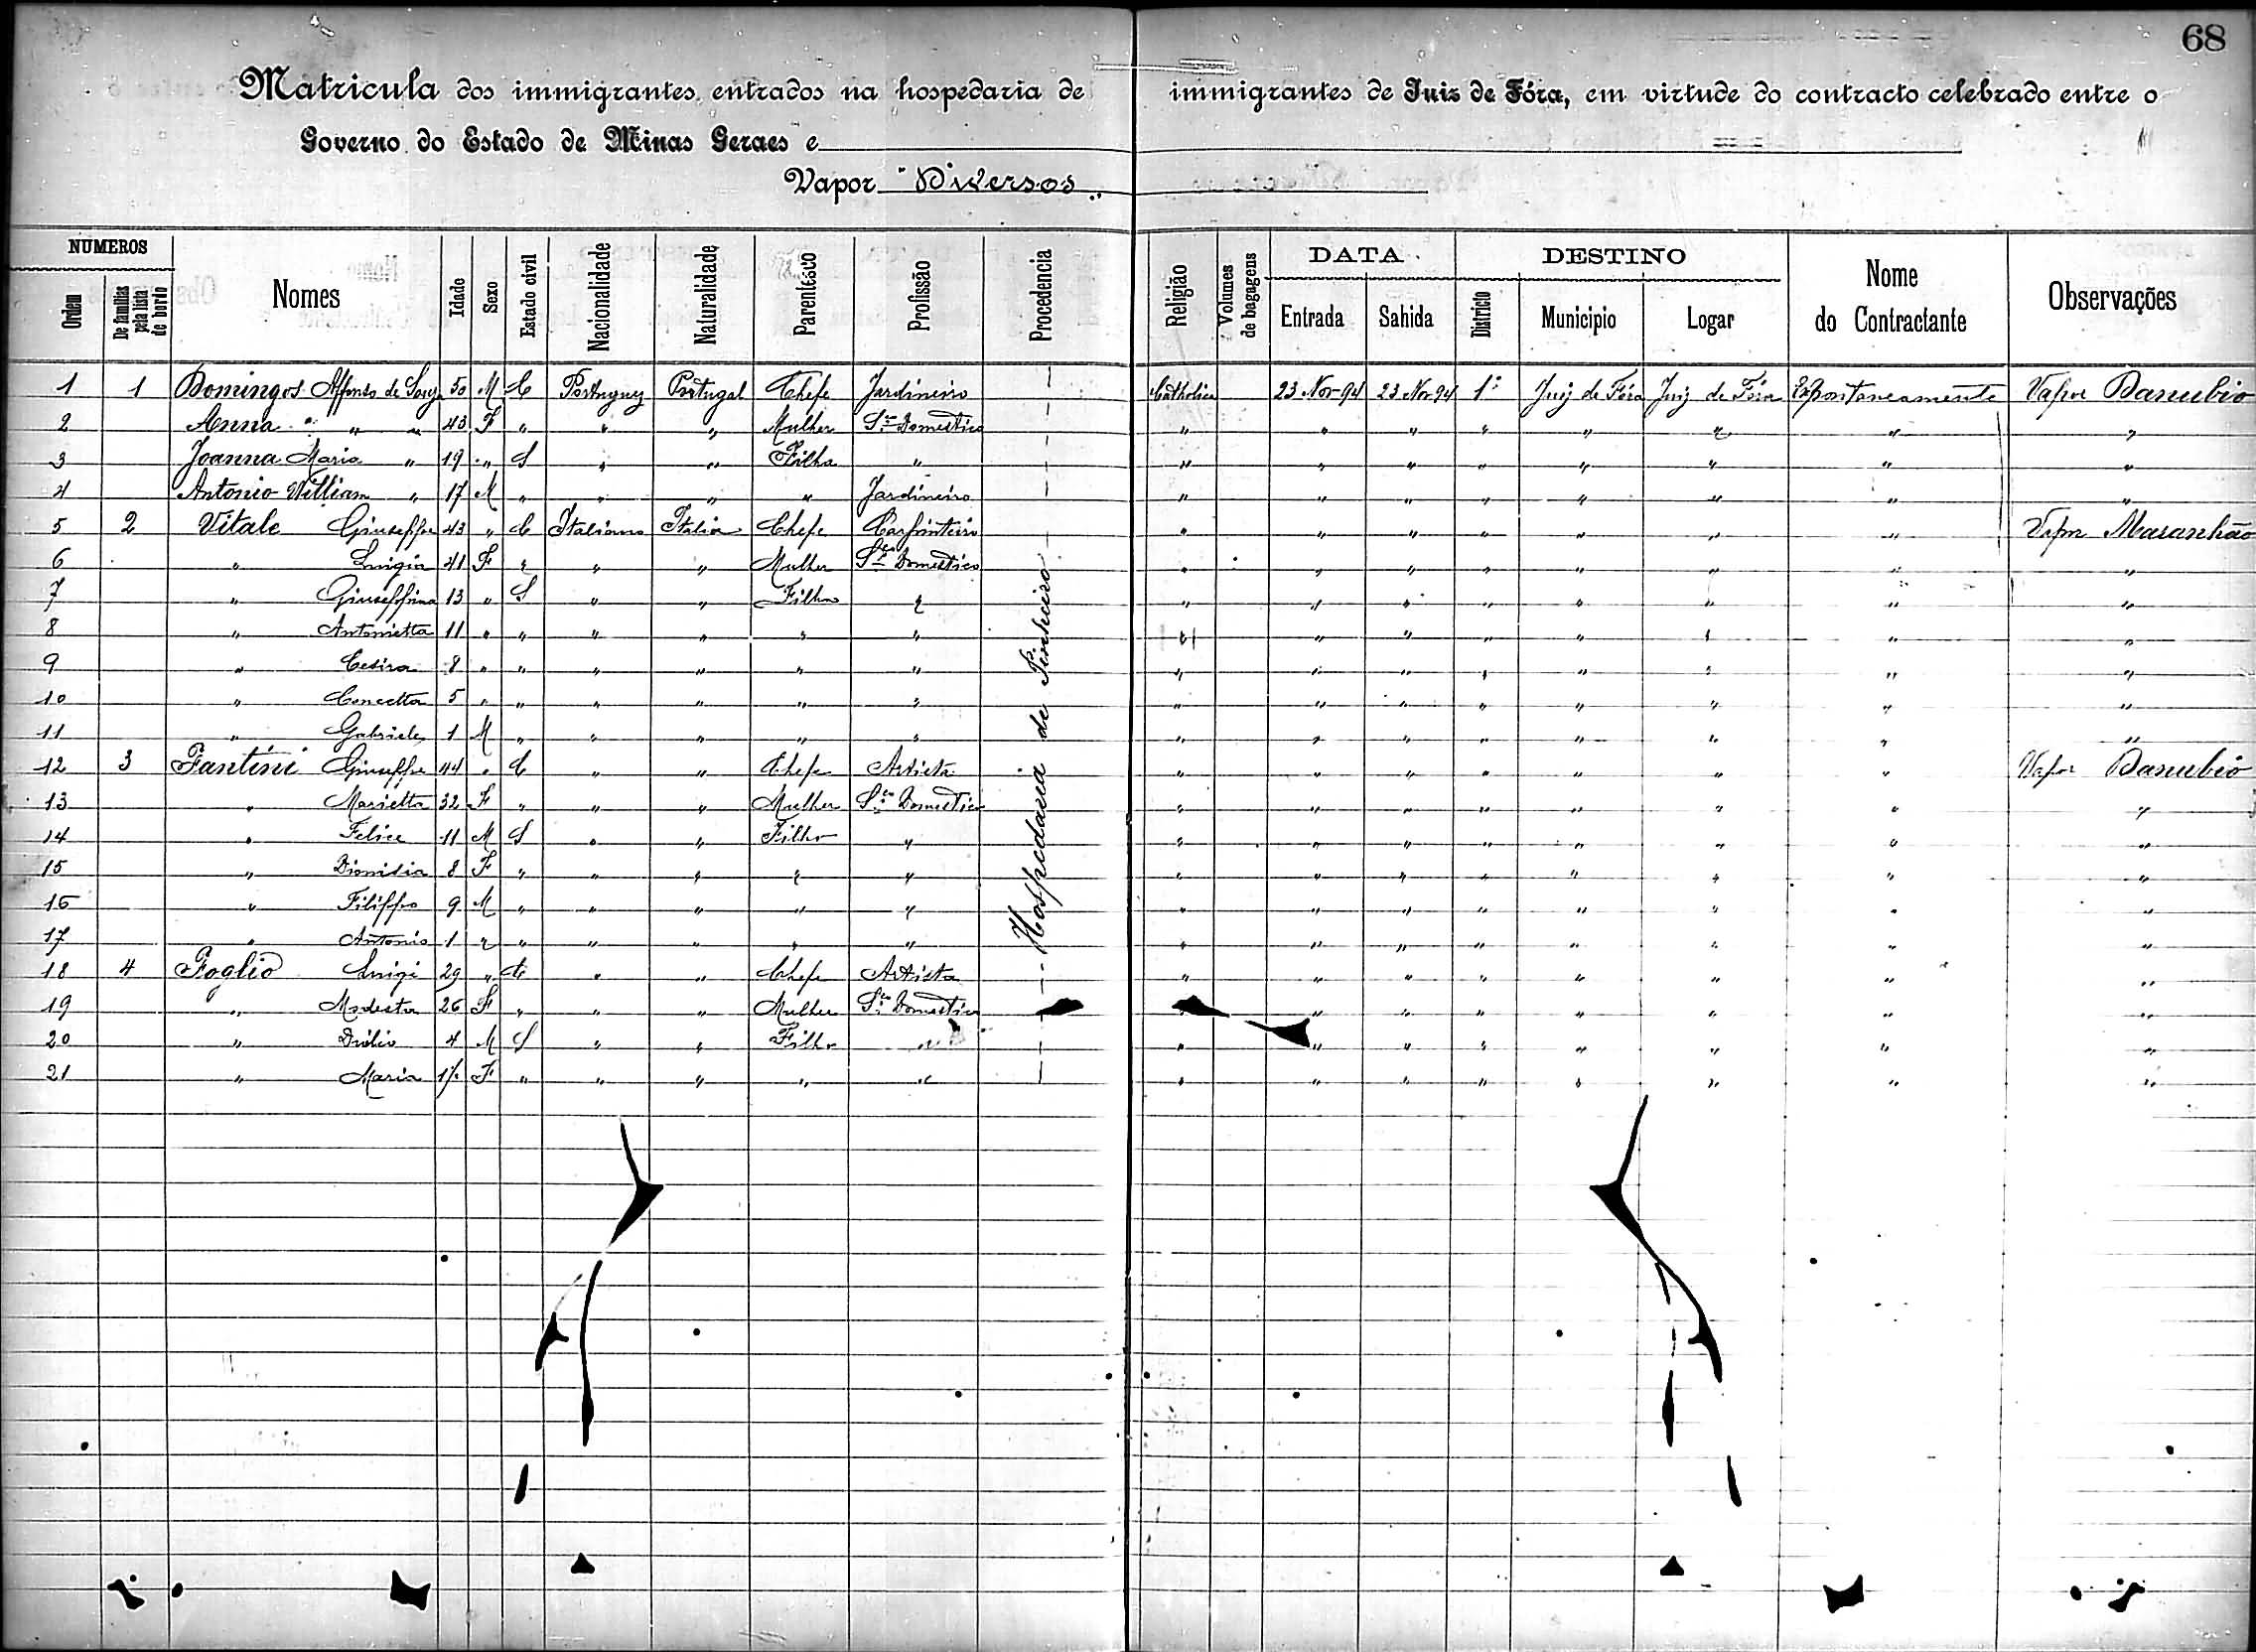 68
Matricula dos immigrantes entrados na hospedaria de immigrantes de Juiz de Fóra, em virtude do contracto celebrado entre o
Governo do Estado de Minas Geraes e
Vapor "Diversos"
NUMEROS Nomes Idade Sexo Estado civil Nacionalidade Naturalidade Parentesco Profissão Procedencia Religião Volumes de bagagens DATA DESTINO Nome do Contractante Observações
Ordem De familias pela lista de bordo Entrada Sahida Districto Municipio Logar
1 1 Domingos Affonso de Souza 50 M C Portuguez Portugal Chefe Jardineiro Catholica 23 Nov 94 23 Nov 94 1º Juiz de Fóra Juiz de Fóra Espontaneamente Vapor Danubio
2 Anna " " " 43 F " " " Mulher Sço Domestico " " " " " " " "
3 Joanna Maria " 19 " S " " Filha " " " " " " " " "
4 Antonio William " 17 M " " " " Jardineiro " " " " " " " "
5 2 Vitale Giuseppe 43 " C Italiano Italia Chefe Carpinteiro " " " " " " " Vapor Maranhão
6 " Luigia 41 F " " " Mulher Sço Domestico " " " " " " " "
7 " Giuseppina 13 " S " " Filha " " " " " " " " "
8 " Antonietta 11 " " " " " " " " " " " " " "
9 " Cesira 8 " " " " " " " " " " " " " "
10 " Concetta 5 " " " " " " " " " " " " " "
11 " Gabriele 1 M " " " " " " " " " " " " "
12 3 Fantini Giuseppe 44 " C " " Chefe Artista " " " " " " " Vapor Danubio
13 " Marietta 32 F " " " Mulher Sço Domestico " " " " " " " "
14 " Felice 11 M S " " Filho " " " " " " " " "
15 " Dionisia 8 F " " " " " " " " " " " " "
16 " Filippo 9 M " " " " " " " " " " " " "
17 " Antonio 1 " " " " " " " " " " " " " "
18 4 Foglio Luigi 29 " C " " Chefe Artista " " " " " " " "
19 " Modesta 26 F " " " Mulher Sço Domestico " " " " " " "
20 " 4 M S " " Filho " " " " " " " " "
21 " Maria F " " " " " " " " " " " " "
Hospedaria de Pinheiro